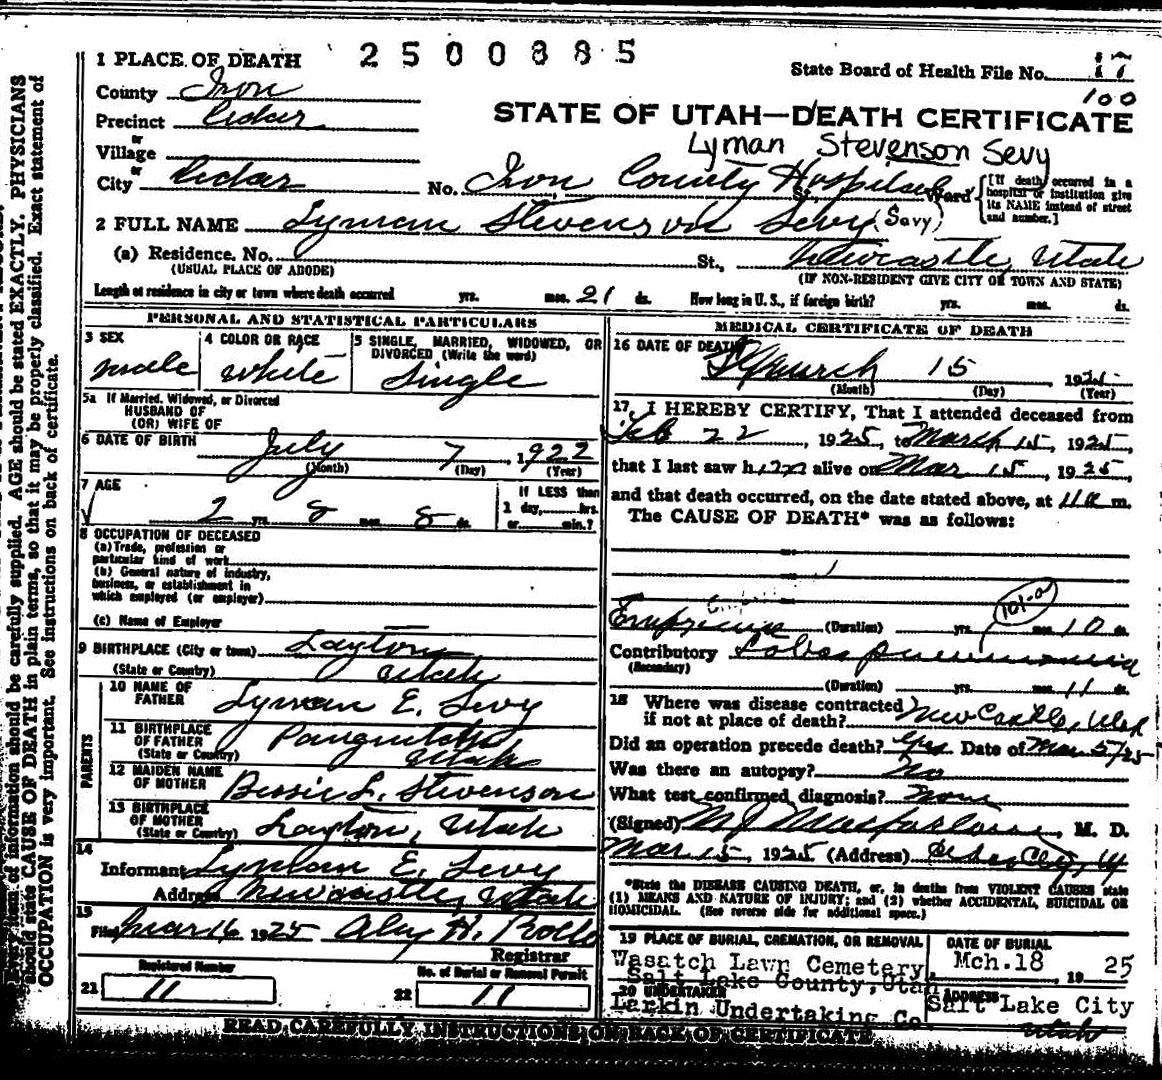 1 PLACE OF DEATH 2500885
State Board of Health File No. 17
100
County Iron
Precinct Cedar
STATE OF UTAH—DEATH CERTIFICATE
or
Village
Lyman Stevenson Sevy
or
City Cedar No. Iron County Hospital St., Ward
[If death occurred in a hospital or institution give its NAME instead of street and number.]
2 FULL NAME Lyman Stevenson Sevy (Savy)
(a) Residence. No. St., Newcastle, Utah
(USUAL PLACE OF ABODE) (IF NON-RESIDENT GIVE CITY OR TOWN AND STATE)
Length of residence in city or town where death occurred yrs. mos. 21 ds. How long in U. S., if foreign birth? yrs. mos. ds.
PERSONAL AND STATISTICAL PARTICULARS
3 SEX
male
4 COLOR OR RACE
White
5 SINGLE, MARRIED, WIDOWED, OR DIVORCED (Write the word)
Single
5a If Married, Widowed, or Divorced
HUSBAND OF
(OR) WIFE OF
6 DATE OF BIRTH July 7, 1922
(Month) (Day) (Year)
7 AGE
2 yrs. 8 mos. 8 ds.
If LESS than
1 day, hrs.
or min.?
8 OCCUPATION OF DECEASED
(a) Trade, profession or
particular kind of work
(b) General nature of industry,
business, or establishment in
which employed (or employer)
(c) Name of Employer
9 BIRTHPLACE (City or town) Layton
(State or Country) Utah
PARENTS
10 NAME OF FATHER Lyman E. Sevy
11 BIRTHPLACE OF FATHER Panguitch
(State or Country) Utah
12 MAIDEN NAME OF MOTHER Bessie L. Stevenson
13 BIRTHPLACE OF MOTHER
(State or Country) Layton, Utah
14
Informant Lyman E. Sevy
Address Newcastle, Utah
15
Filed Mar 16 1925
Registrar
Registered Number
21 11
No. of Burial or Removal Permit
22 11
MEDICAL CERTIFICATE OF DEATH
16 DATE OF DEATH March 15, 1925
(Month) (Day) (Year)
17. I HEREBY CERTIFY, That I attended deceased from
Feb 22, 1925, to March 15, 1925,
that I last saw him alive on Mar 15, 1925,
and that death occurred, on the date stated above, at 11 a m.
The CAUSE OF DEATH* was as follows:
101-a
Empyema (Duration) yrs. mos. 10 ds.
Contributory Lobar pneumonia
(Secondary)
(Duration) yrs. mos. 11 ds.
18 Where was disease contracted
if not at place of death? New Castle, Utah
Did an operation precede death? Yes. Date of Mar 5/25
Was there an autopsy? No
What test confirmed diagnosis? None
(Signed) M J Macfarlane, M. D.
Mar 15, 1925 (Address) Cedar City, U
*State the DISEASE CAUSING DEATH, or, in deaths from VIOLENT CAUSES state
(1) MEANS AND NATURE OF INJURY; and (2) whether ACCIDENTAL, SUICIDAL OR
HOMICIDAL. (See reverse side for additional space.)
19 PLACE OF BURIAL, CREMATION, OR REMOVAL
Wasatch Lawn Cemetery,
Salt Lake County, Utah
DATE OF BURIAL
Mch. 18 1925
20 UNDERTAKER
Larkin Undertaking Co.
ADDRESS
Salt Lake City
Utah
READ CAREFULLY INSTRUCTIONS ON BACK OF CERTIFICATE
Every item of information should be carefully supplied. AGE should be stated EXACTLY. PHYSICIANS
should state CAUSE OF DEATH in plain terms, so that it may be properly classified. Exact statement of
OCCUPATION is very important. See instructions on back of certificate.